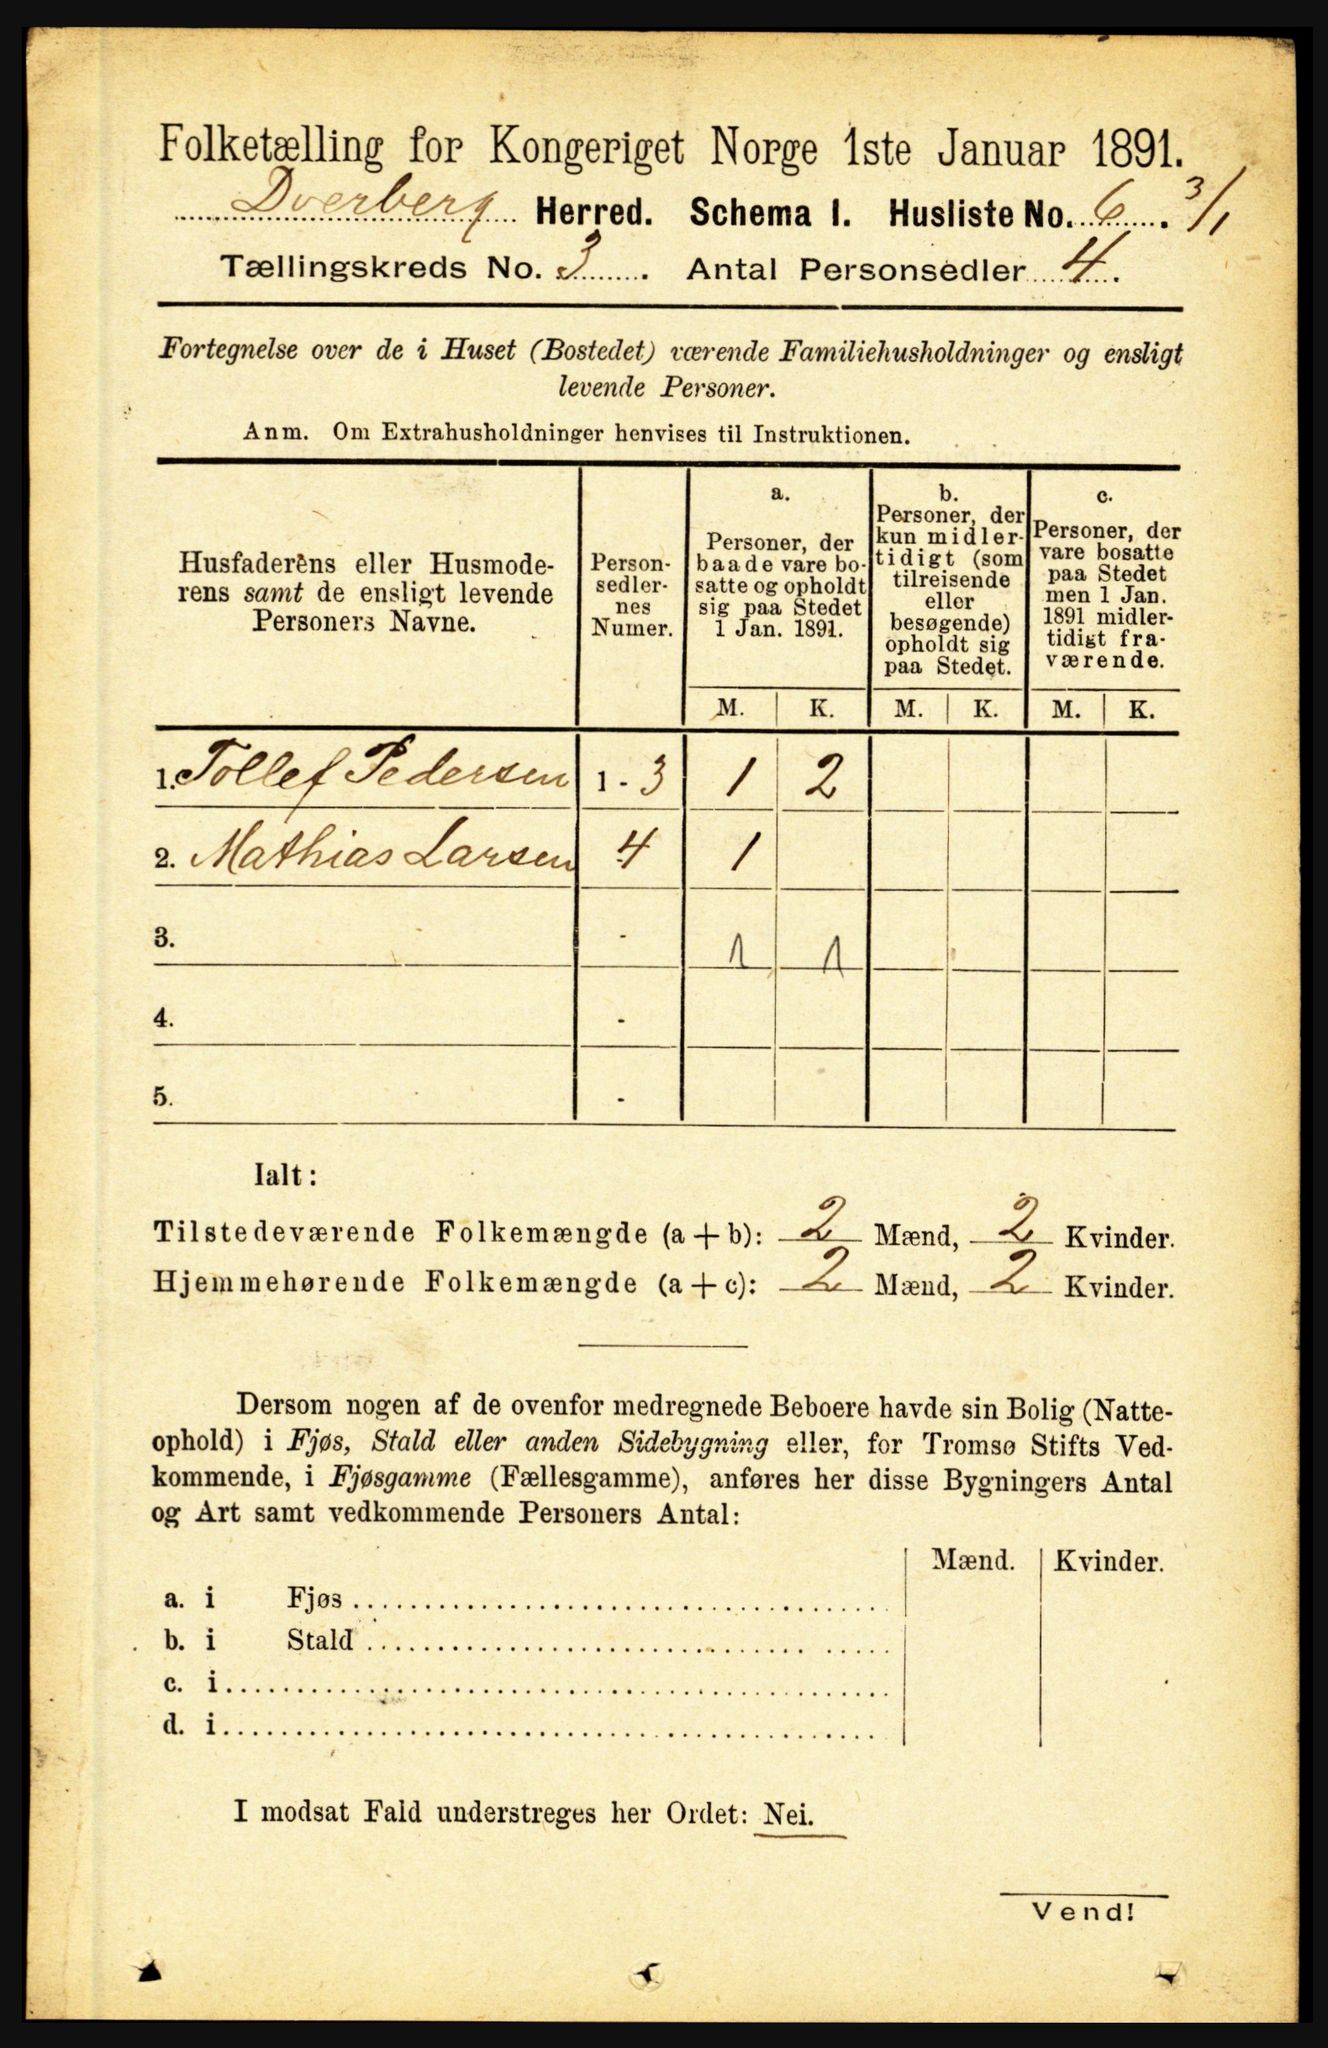 Folketælling for Kongeriget Norge 1ste Januar 1891.
Dverberg Herred. Schema I. Husliste No. 6. 3/1
Tællingskreds No. 3. Antal Personsedler 4.
Fortegnelse over de i Huset (Bostedet) værende Familiehusholdninger og ensligt
levende Personer.
Anm. Om Extrahusholdninger henvises til Instruktionen.
Husfaderens eller Husmode-
rens samt de ensligt levende
Personers Navne.
Person-
sedler-
nes
Numer.
a.
Personer, der
baade vare bo-
satte og opholdt
sig paa Stedet
1 Jan. 1891.
b.
Personer, der
kun midler-
tidigt (som
tilreisende
eller
besøgende)
opholdt sig
paa Stedet.
c.
Personer, der
vare bosatte
paa Stedet
men 1 Jan.
1891 midler-
tidigt fra-
værende.
M. K. M. K. M. K.
1. Tollef Pedersen 1 - 3 1 2
2. Mathias Larsen 4 1
3. - 1 1
4. -
5. -
Ialt:
Tilstedeværende Folkemængde (a + b): 2 Mænd, 2 Kvinder.
Hjemmehørende Folkemængde (a + c): 2 Mænd, 2 Kvinder.
Dersom nogen af de ovenfor medregnede Beboere havde sin Bolig (Natte-
ophold) i Fjøs, Stald eller anden Sidebygning eller, for Tromsø Stifts Ved-
kommende, i Fjøsgamme (Fællesgamme), anføres her disse Bygningers Antal
og Art samt vedkommende Personers Antal:
Mænd. Kvinder.
a. i Fjøs
b. i Stald
c. i
d. i
I modsat Fald understreges her Ordet: Nei.
Vend!